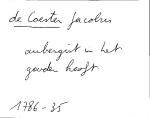 de Coester Jacobus
aubergist in het
gouden hooft
1786-35